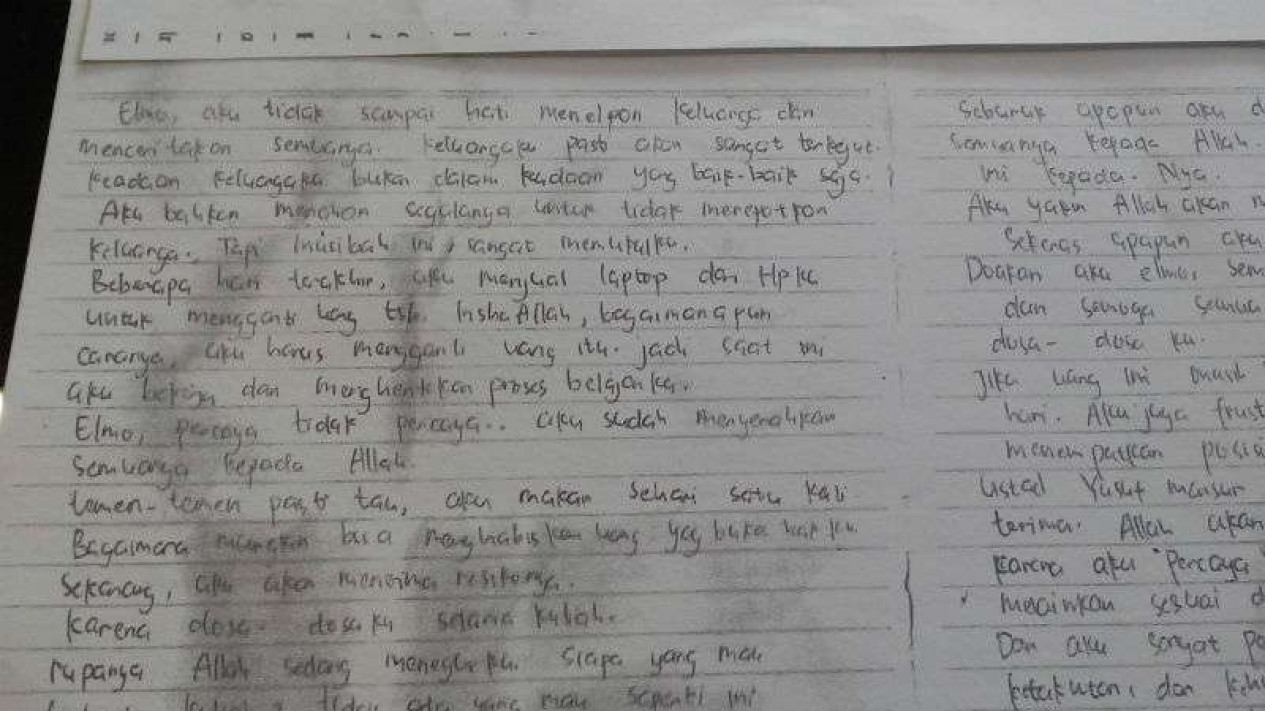 Elmo, aku tidak sampai hati menelpon keluarga dan
menceritakan semuanya. Keluargaku pasti akan sangat terkejut.
Keadaan keluargaku bukan dalam keadaan yang baik-baik saja.
Aku bahkan menahan segalanya untuk tidak merepotkan
keluarga. Tapi musibah ini, sangat memukulku.
Beberapa hari terakhir, aku menjual laptop dan HPku
untuk mengganti uang tsb. InshaAllah, bagaimanapun
caranya, aku harus mengganti uang itu. jadi saat ini
aku bekerja dan menghentikan proses belajarku.
Elmo, percaya tidak percaya.. aku sudah menyerahkan
semuanya kepada Allah.
temen-temen pasti tau, aku makan sehari satu kali
Bagaimana mungkin bisa menghabiskan uang yag bukan hak ku
Sekarang, aku akan menerima resikonya.
karena dosa-dosaku selama kuliah.
rupanya Allah sedang menegurku. Siapa yang mau
tidak ada yang mau seperti ini
Seburuk apapun aku
semuanya kepada Allah.
ini kepada-Nya.
Aku yakin Allah akan
Sekeras apapun aku
Doakan aku elmo,
dan semoga semua
dosa-dosa ku.
Jika uang ini
hari. Aku juga
menempatkan
Ustad Yusuf mansur
terima. Allah akan
karena aku "Percaya
mainkan sesuai
Dan aku sangat
ketakutan, dan